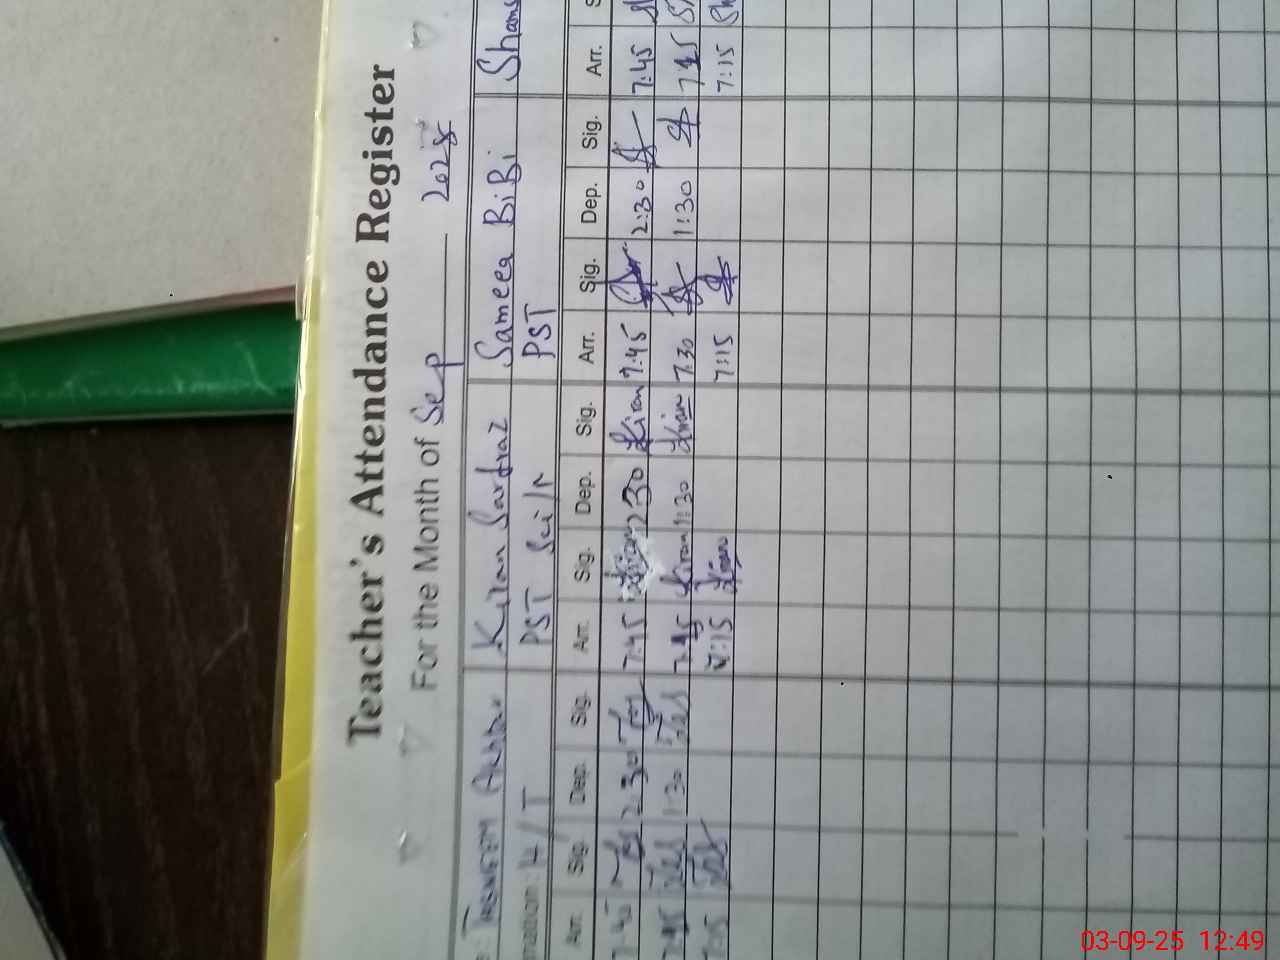 Teacher's Attendance Register
For the Month of Sep 2025
Kiran Sarfraz Sameea BiBi Shams
mation: H/T PST Sci/A PST
Arr. Sig. Dep. Sig. Arr. Sig. Dep. Sig. Arr. Sig. Dep. Sig. Arr. S
7:45 2:30 7:45 Kiran 2:30 Kiran 7:45 2:30 7:45
7:45 1:30 7:45 Kiran 1:30 Kiran 7:30 1:30 7:45
7:15 7:15 Kiran 7:15 7:15 Sh
03-09-25 12:49